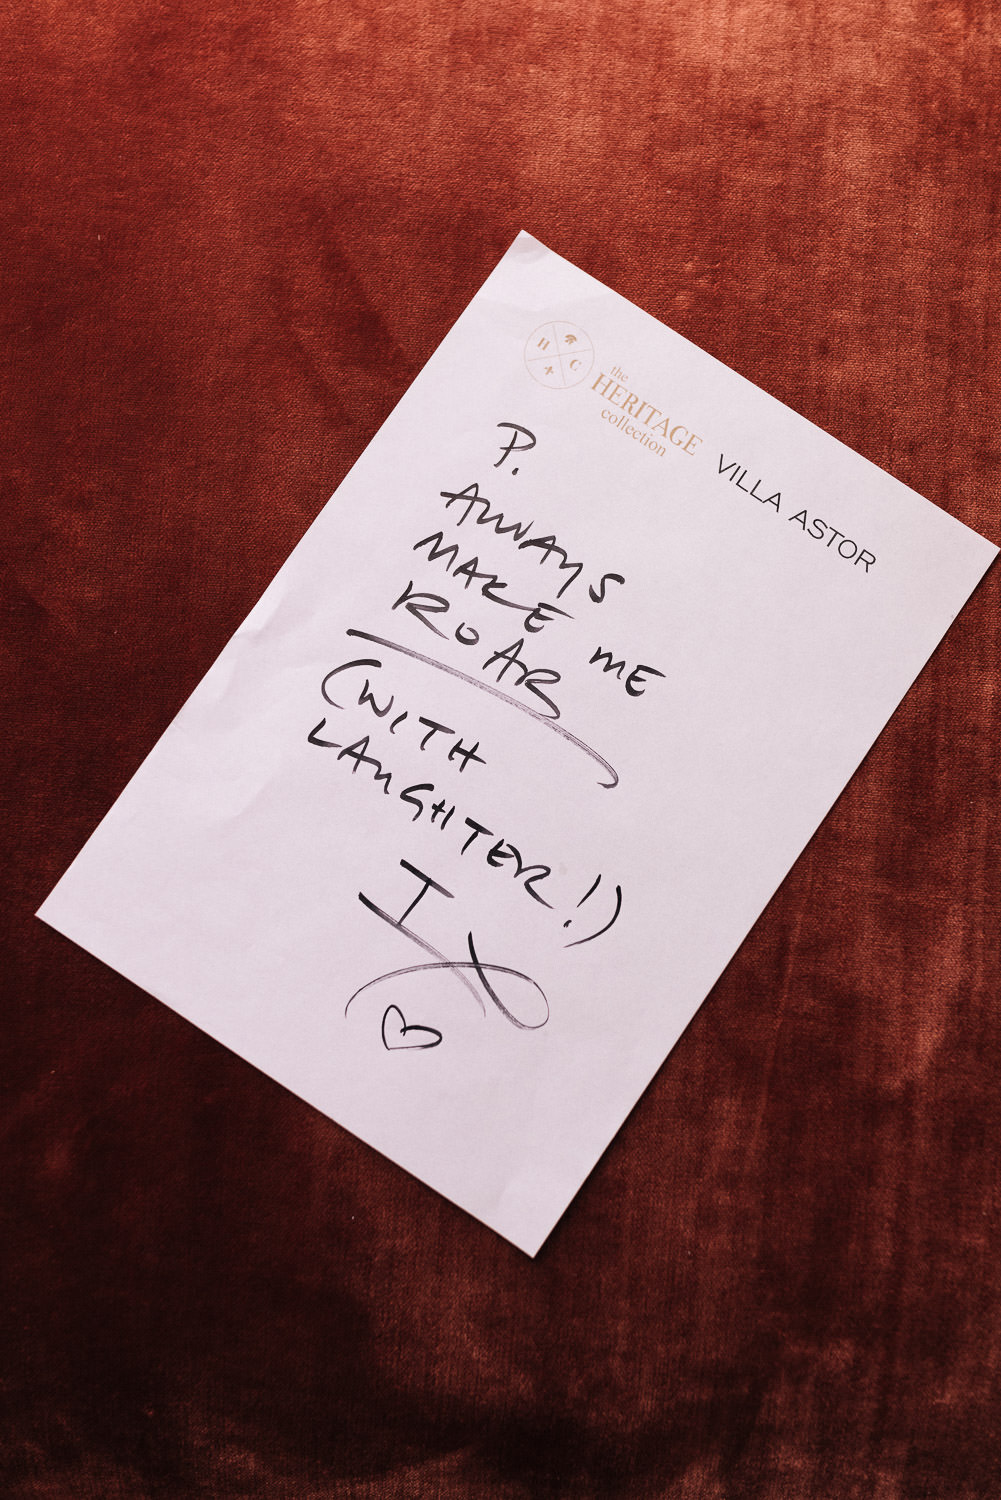 H C
the
HERITAGE
collection
VILLA ASTOR
P.
ALWAYS
MAKE ME
ROAR
(WITH
LAUGHTER!)
I